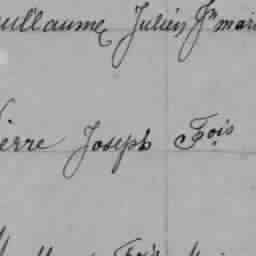 uillaume Julien Jn mari
ierre Joseph Fois